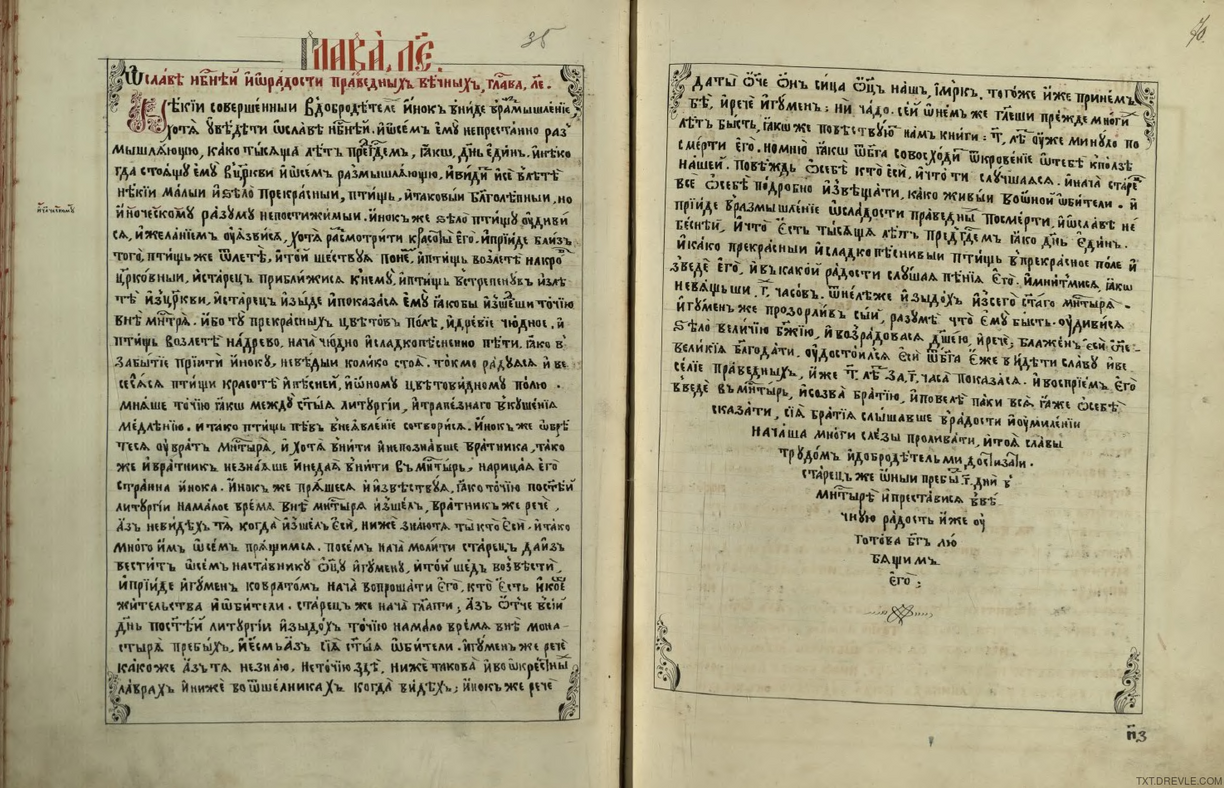 35
ГЛАВА, ЛЕ.
Ѡ славѣ нб҃нѣй и҆ ѡ҆ радости праведныхъ вѣчныхъ, глава, ле.
Нѣкїи совершенныи в добродѣтеле инокъ вниде в размышленїе,
хотя ѹвѣдѣти ѡ славѣ нб҃нѣй. и ѡ семъ ему непрестанно раз
мышляющю, како тысяща лѣтъ прейдемъ, якѡ, днь единъ. и нѣко
гда стоящу ему в цр҃кви и ѡ семъ размышляющю, и види и се влѣтѣ
нѣкїи малыи и ѕѣло прекрасныи, птищь, и таковыи благолѣпныи, но
иноческому разуму непостижимыи. инокъ же ѕѣло птищу ѹдиви
ся, и желанїемъ ѹязвися, хотя расмотрити красоты его. и прїиде близъ
того, птищь же ѿлетѣ, и той шествуя по не, и птищь возлетѣ на кро
цр҃ковныи, и старецъ приближися к нему, и птищь встрепенувъ излѣ
тѣ из цр҃кви, и старецъ изыде и показася ему якобы изшеши точїю
внѣ мн҃тря. ибо ту прекрасныхъ цвѣтовъ поле, и древїе чюдное. и
птищь возлетѣ на древо, нача чюдно и сладкопѣсненно пѣти. яко в
забытїе прїити иноку, не вѣдыи колико стоя. токмо радуяся и ве
селяся птищи красотѣ и пѣсней, и ѡному цвѣтовидному полю.
мняше точїю якѡ между ст҃ыя литургїи, и трапезнаго вкушенїя
медлѣнїю. и тако птищь пѣвъ внеявленїе сотворися. инокъ же ѡбрѣ
теся у вратъ мн҃тыря, и хотя внити и не познавше вратника, тако
же и вратникъ не знаяше и не дая внити въ мн҃тырь, нарицая его
странна инока. инокъ же пряшеся и извѣствуя, яко точїю по ст҃ѣй
литургїи на малое время внѣ мн҃тыря изшелъ, вратникъ же рече,
азъ не видѣхъ тя когда изшелъ еси, ниже знаютъ ты кто еси. и тако
много имъ ѡ семъ пряшимся. по семъ нача молити старецъ да из
вѣститъ ѡ семъ наставнику ѻц҃у игумену, и той шедъ возвѣсти,
и прїиде игуменъ ко вратомъ нача вопрошати его, кто есть и коея
жительства и ѡбители. старецъ же нача гл҃ати; азъ ѻтч҃е в сїи
днь по ст҃ѣй литургїи изыдохъ точїю на мало время внѣ мона
стыря пребыхъ, и есмь азъ сїя ст҃ыя ѡбители. игуменъ же рече
како же азъ тя не знаю. не точїю здѣ, ниже такова и во ѡкрестны
лаврахъ и ниже во ѿшелникахъ когда видѣхъ; инокъ же рече
70.
да ты ѻч҃е ѻнъ сица ѻц҃ъ нашъ, и҆мркъ. тогоже и же прїемъ
бѣ, и рече игуменъ; ни чадо. сей ѡ немъ же гл҃еши прежде многи
лѣтъ бысть, якѡ же повѣствую намъ книги; т҃, лѣ уже минуло по
смерти его. но мню якѡ ѿ бг҃а совосходи ѿкровенїе ѡ тебѣ к ползѣ
нашей. повѣждь ѡ себѣ кто еси, и что ти случшаяся. и нача старе
все ѡ себѣ подробно извѣщати, како живыи во ѡной ѡбители. и
прїиде в размышленїе ѡ сладости праведны по смерти, и ѡ славѣ не
беснѣй, и что есть тысяща лѣтъ предъ гдемъ яко днь единъ.
и како прекрасныи и сладкопѣснивыи птищь в прекрасное поле и
зведе его, и въ какой радости слушая пѣнїя его. и мнитмися, якѡ
не вящьши, г҃, часовъ. ѿнелѣже изыдохъ из сего ст҃аго мн҃тыря.
игуменъ же прозорливъ сыи, разумѣ что ему бысть. ѹдивися
ѕѣло величїю бж҃їю, и возрадовася дш҃ею, и рече; блаженъ еси ѻт҃че.
великїя благодати. ѹдостоился еси ѿ бг҃а еже видѣти славу и ве
селїе праведныхъ, иже т҃. лѣ за, г҃. часа показася. и воспрїемъ его
введе въ мн҃тырь, и созва братїю, и повелѣ паки вся яже ѡ себѣ
сказати, сїя братїя слышавше в радости и ѹмиленїи
начаша многи слезы проливати, и тоя славы
трудомъ и добродѣтельми достизати.
старецъ же ѡныи пребы г҃. дни в
мн҃тырѣ и преставися в вѣ
чную радость иже ѹ
готова бг҃ъ лю
бящимъ
его;
п҃з
TXT.DREVLE.COM